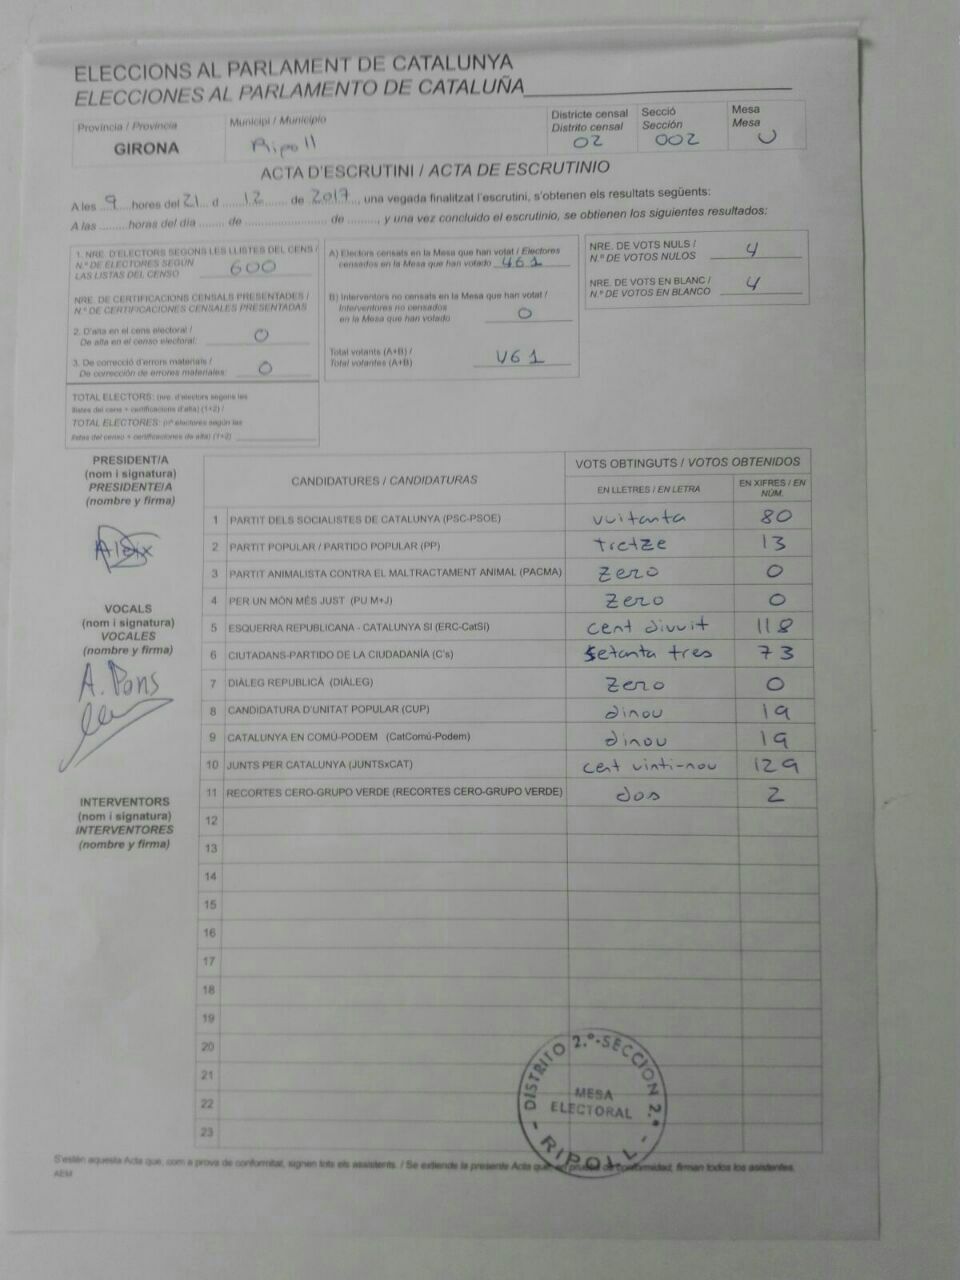 ELECCIONS AL PARLAMENT DE CATALUNYA
ELECCIONES AL PARLAMENTO DE CATALUÑA
Província / Provincia
GIRONA
Municipi / Municipio
Ripoll
Districte censal
Distrito censal
02
Secció
Sección
002
Mesa
Mesa
U
ACTA D'ESCRUTINI / ACTA DE ESCRUTINIO
A les 9 hores del 21 d 12 de 2017, una vegada finalitzat l'escrutini, s'obtenen els resultats següents:
A las ........horas del día ...... de ...................... de ........, y una vez concluido el escrutinio, se obtienen los siguientes resultados:
1. NRE. D'ELECTORS SEGONS LES LLISTES DEL CENS /
N.º DE ELECTORES SEGÚN
LAS LISTAS DEL CENSO
600
NRE. DE CERTIFICACIONS CENSALS PRESENTADES /
N.º DE CERTIFICACIONES CENSALES PRESENTADAS
2. D'alta en el cens electoral /
De alta en el censo electoral:
0
3. De correcció d'errors materials /
De corrección de errores materiales:
0
TOTAL ELECTORS: (nre. d'electors segons les
llistes del cens + certificacions d'alta) (1+2) /
TOTAL ELECTORES: (nº electores según las
listas del censo + certificaciones de alta) (1+2)
A) Electors censats en la Mesa que han votat / Electores
censados en la Mesa que han votado 461
B) Interventors no censats en la Mesa que han votat /
Interventores no censados
en la Mesa que han votado
0
Total votants (A+B) /
Total votantes (A+B)
461
NRE. DE VOTS NULS /
N.º DE VOTOS NULOS
4
NRE. DE VOTS EN BLANC /
N.º DE VOTOS EN BLANCO
4
PRESIDENT/A
(nom i signatura)
PRESIDENTE/A
(nombre y firma)
Aleix
VOCALS
(nom i signatura)
VOCALES
(nombre y firma)
A. Pons
INTERVENTORS
(nom i signatura)
INTERVENTORES
(nombre y firma)
CANDIDATURES / CANDIDATURAS
VOTS OBTINGUTS / VOTOS OBTENIDOS
EN LLETRES / EN LETRA
EN XIFRES / EN NÚM.
1 PARTIT DELS SOCIALISTES DE CATALUNYA (PSC-PSOE) vuitanta 80
2 PARTIT POPULAR / PARTIDO POPULAR (PP) tretze 13
3 PARTIT ANIMALISTA CONTRA EL MALTRACTAMENT ANIMAL (PACMA) zero 0
4 PER UN MÓN MÉS JUST (PU M+J) zero 0
5 ESQUERRA REPUBLICANA - CATALUNYA SI (ERC-CatSí) cent divuit 118
6 CIUTADANS-PARTIDO DE LA CIUDADANÍA (C's) setanta tres 73
7 DIÀLEG REPUBLICÀ (DIÀLEG) zero 0
8 CANDIDATURA D'UNITAT POPULAR (CUP) dinou 19
9 CATALUNYA EN COMÚ-PODEM (CatComú-Podem) dinou 19
10 JUNTS PER CATALUNYA (JUNTSxCAT) cent vinti-nou 129
11 RECORTES CERO-GRUPO VERDE (RECORTES CERO-GRUPO VERDE) dos 2
12
13
14
15
16
17
18
19
20
21
22
23
DISTRITO 2.º-SECCION 2.ª
MESA
ELECTORAL
- RIPOLL -
S'estén aquesta Acta que, com a prova de conformitat, signen tots els assistents. / Se extiende la presente Acta que, en prueba de conformidad, firman todos los asistentes.
AEM